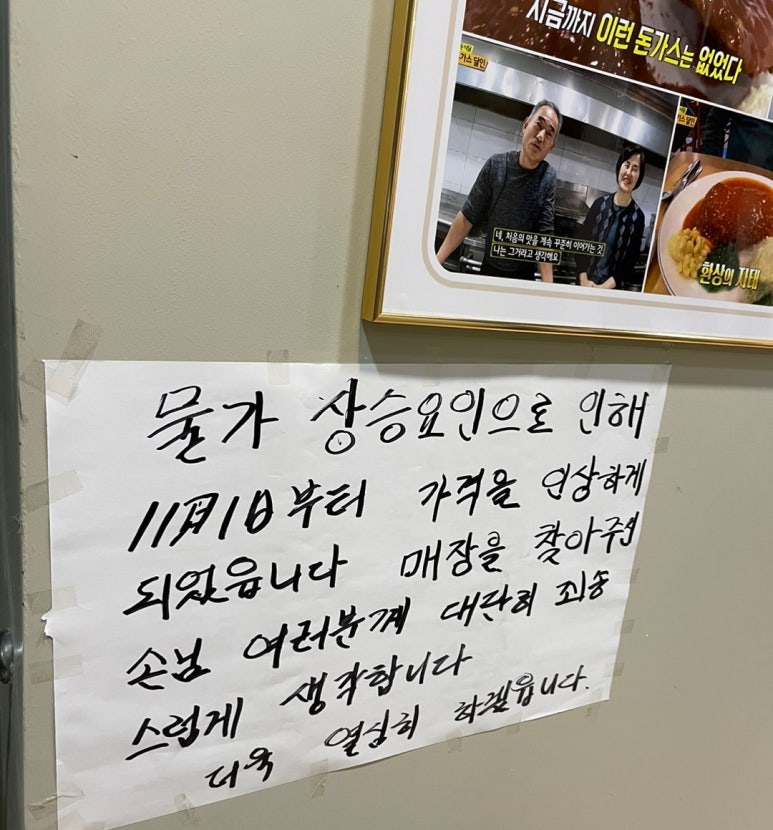 지금까지 이런 돈가스는 없었다
가스 달인
네, 처음의 맛을 계속 꾸준히 이어가는 것
나는 그거라고 생각해요
환상의 자태
물가 상승요인으로 인해
11月1日부터 가격을 인상하게
되었읍니다 매장을 찾아주신
손님 여러분께 대단히 죄송
스럽게 생각합니다
더욱 열심히 하겠읍니다.